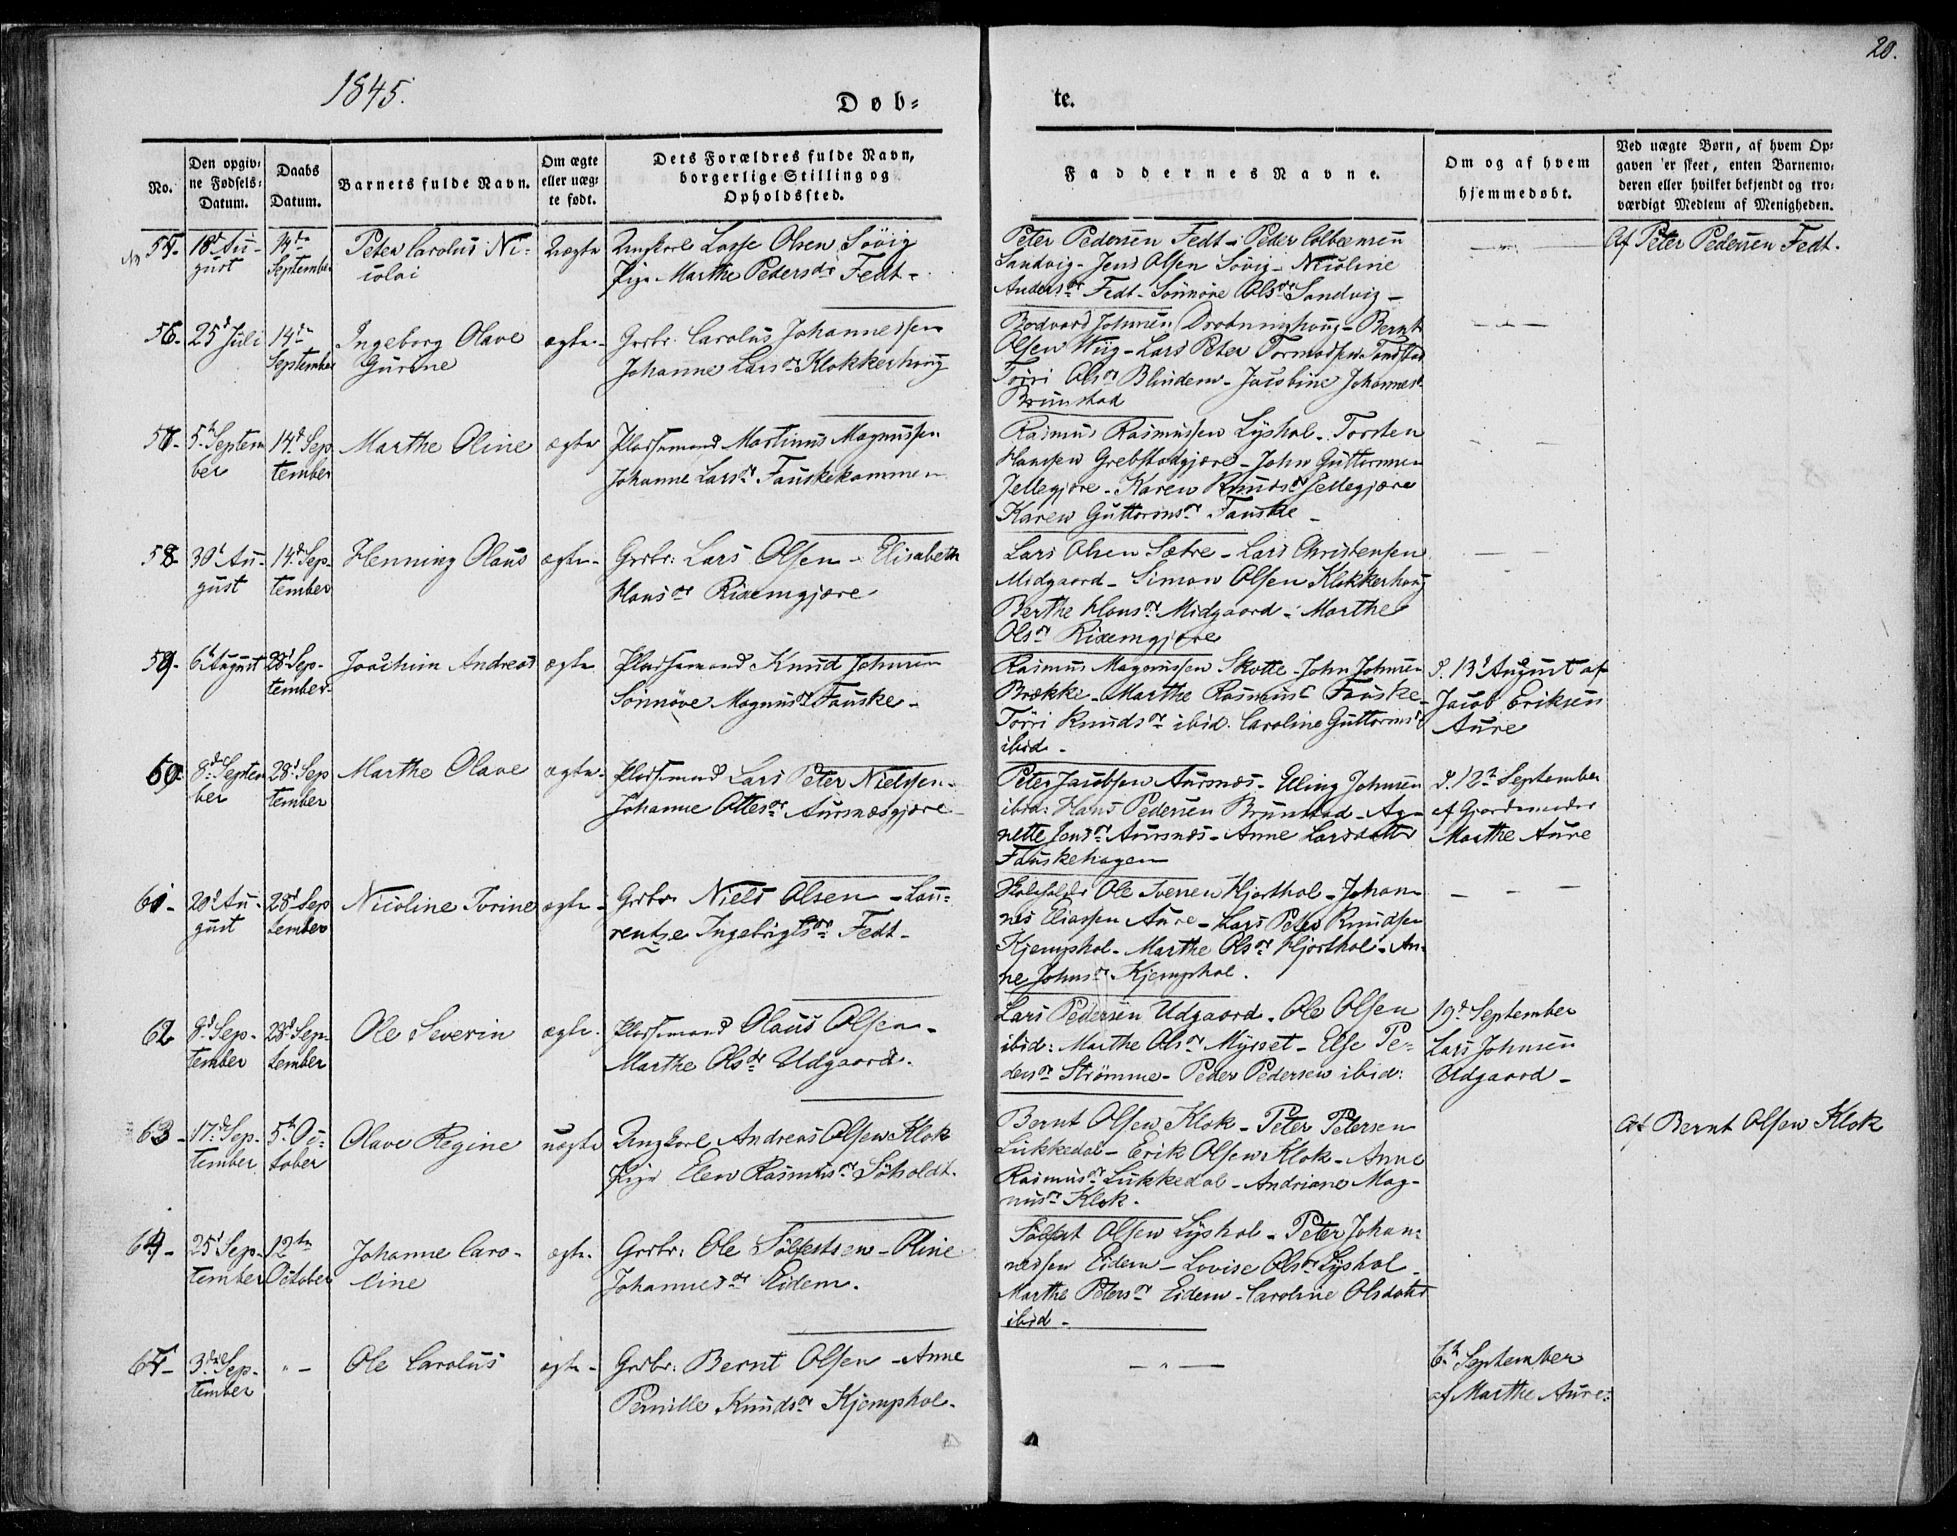 1845.
Døb-
te.
20.
No.
Den opgiv-
ne Fødsels-
Datum.
Daabs
Datum.
Barnets fulde Navn.
Om ægte
eller uæg-
te født.
Dets Forældres fulde Navn,
borgerlige Stilling og
Opholdssted.
Faddernes Navne.
Om og af hvem
hjemmedøbt.
Ved uægte Børn, af hvem Op-
gaven er skeet, enten Barnemo-
deren eller hvilket bekjendt og tro-
værdigt Medlem af Menigheden.
55.
18d Au-
gust
14de
September
Peter Carolus Ni-
colai
Uægte
Ungkarl Lasse Olsen Søvig
Pige Marthe Pedersdr Fedt-
Peter Pedersen Fedt- Peder
Sandvig- Jens Olsen Søvig- Nicoline
Andersdr Fedt- Sønnøve Olsdr Sandvig-
Af Peter Pedersen Fedt.
56.
25d Juli
14de
September
Ingeborg Olave
Gurine
ægte-
Grbr. Carolus Johannessen
Johanne Larsdr Klokkerhoug
Bodvard Johnsen Drotninghoug- Bernt
Olsen Wiig- Lars Peter Tormodsen Tandstad
Tørri Olsdr Blindem- Jacobine Johannesd
Brunstad
57-
5te Septem
ber
14d Sep
tember
Marthe Oline
ægte
Pladsemand Martinus Magnussen
Johanne Larsdr Fauskekammen
Rasmus Rasmussen Lyshol- Torsten
Hanssen Grebstadgjære- John Guttormsen
Jellegjære- Karen Knudsdr Jellegjære
Karen Guttormsdr Fauske-
58
30d Au-
gust
14d Sep-
tember
Henning Olaus
ægte-
Grbr: Lars Olsen- Elisabeth
Hansdr Rixemgjære
Lars Olsen Sætre- Lars Christensen
Midgaard- Simon Olsen Klokkerhoug
Berthe Hansdr Midgaard- Marthe
Olsdr Rixemgjære
59-
6te August
28d Sep-
tember-
Joachim Andreas
ægte
Pladsemand Knud Johnsen
Sønnøve Magnusdr Fauske-
Rasmus Magnussen Skotte- John Johnsen
Brække- Marthe Rasmusd Fauske-
Tørri Knudsdr ibid. Caroline Guttormsd
ibid-
d. 13d August af
Jacob Eriksen
Aure
60-
8de Septem
ber
28d Sep
tember
Marthe Olave
ægte-
Pladsemand Lars Peter Nielssen-
Johanne Ottesdr Aursnæsgjære-
Peter Jacobsen Aursnæs- Elling Johnsen
ibid: Hans Pedersen Brunstad- Ag-
nette Jensdr Aursnæs- Anne Larsdatter
Fauskehagen
d. 12te September
af Gjordemoder
Marthe Aure
61-
20d Au-
gust
28d Sep
tember
Nicoline Torine
ægte-
Grbr. Niels Olsen- Lau-
rentze Ingebrigtsdr Fedt-
Ole Hjorthol- Johan-
nes Eliassen Aure- Lars Peter Knudsen
Kjemphol- Marthe Olsdr Hjorthol- An-
ne Johnsdr Kjemphol.
62
8d Sep-
tember
28d Sep-
tember
Ole Severin
ægte-
Pladsemand Olaus Olsen-
Marthe Olsdr Udgaard.
Lars Pedersen Udgaard- Ole Olsen
ibid: Marthe Olsdr Myrset- Else Pe-
dersdr Strømme- Peder Pedersen ibid:
19d September
Lars Johnsen
Udgaard-
63-
17de Sep-
tember
5te Oc-
tober
Olave Regine
uægte
Ungkarl Andreas Olsen Klok
Pige Elen Rasmusdr Søholdt.
Bernt Olsen Klok- Peter Petersen
Lukkedal- Erik Olsen Klok- Anne
Rasmusdr Lukkedal- Andriane Mag-
nusdr Klok.
Af Bernt Olsen Klok
64-
25d Sep-
tember
12te
October
Johanne Caro-
line
ægte-
Grbr: Ole Sølfestsen- Oline
Johannesdr Eidem.
Sølfest Olsen Lyshol- Peter Johan-
nessen Eidem- Lovise Olsdr Lyshol-
Marthe Petersdr Eidem- Caroline Olsdatr
ibid-
65-
3die Sep-
tember
" -
Ole Carolus
ægte-
Grbr: Bernt Olsen- Anne
Pernille Knudsdr Kjemphol.
- " -
6te September
af Marthe Aure: